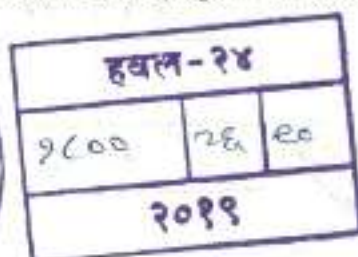 हवल-२४
१८०० २६ ९०
२०१९